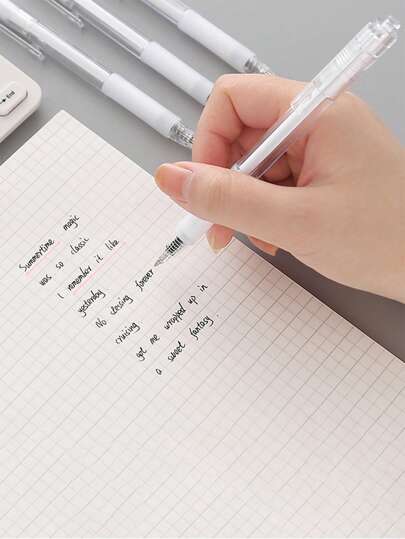 Summertime magic
was so classic
I remember it like
yesterday
No closing forever
cruising
got me wrapped up in
a sweet fantasy.
End